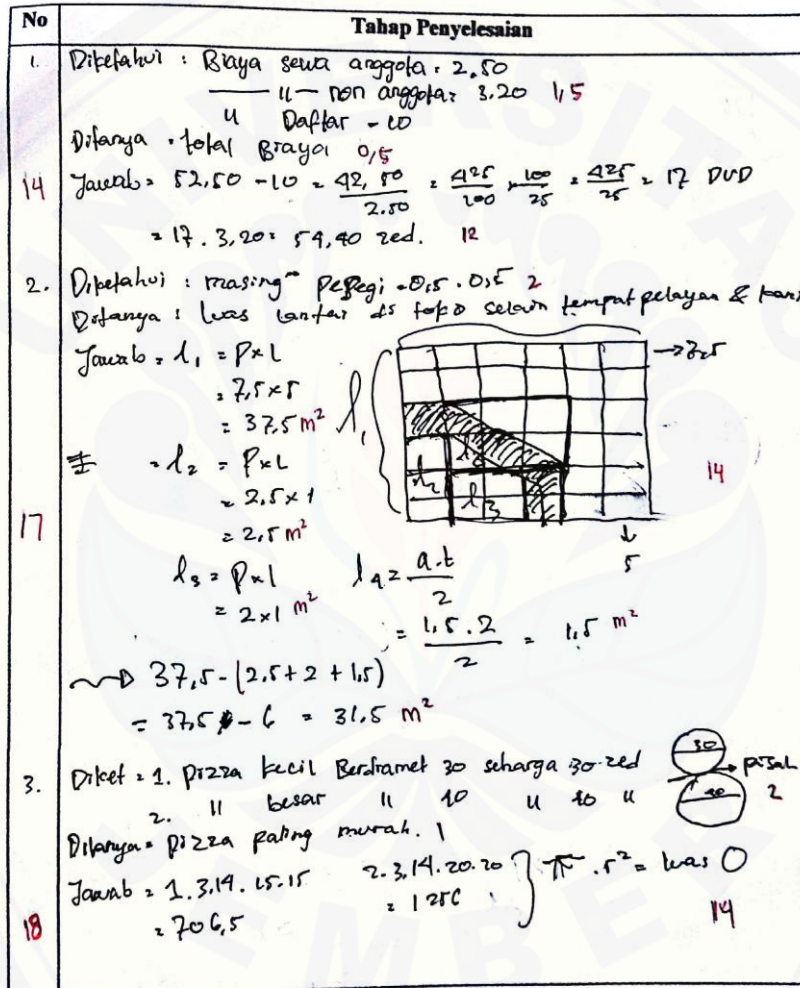 No Tahap Penyelesaian
1. Diketahui : Biaya sewa anggota = 2.50
— 11 — non anggota = 3.20 1,5
u Daftar - 10
Ditanya = total Biaya 0,5
14 Jawab = 52,50 - 10 = 42,50 / 2.50 = 425/100 × 100/25 = 425/25 = 17 DVD
= 17 . 3,20 = 54,40 zed. 12
2. Diketahui : masing" persegi = 0,5 . 0,5 2
Ditanya : luas lantai ds toko selain tempat pelayan &
Jawab = l1 = P×L
= 7,5 × 5
= 37,5 m²
= l2 = P×L
= 2,5 × 1
17 = 2,5 m²
l3 = P×l
= 2×1 m²
l4 = a.t / 2
= 1,5 . 2 / 2 = 1,5 m²
37,5 - (2,5 + 2 + 1,5)
= 37,5 - 6 = 31,5 m²
l1
l2
l3
5
14
3. Diket = 1. pizza kecil Berdiamet 30 seharga 30 zed
2. 11 besar 11 40 u 40 u
30
40
pisah
2
Ditanya = pizza paling murah. 1
Jawab = 1. 3,14 . 15 . 15
= 706,5
2. 3,14 . 20 . 20
= 1256
π . r² = luas O
18
14
UNIVERSITA
EMBER